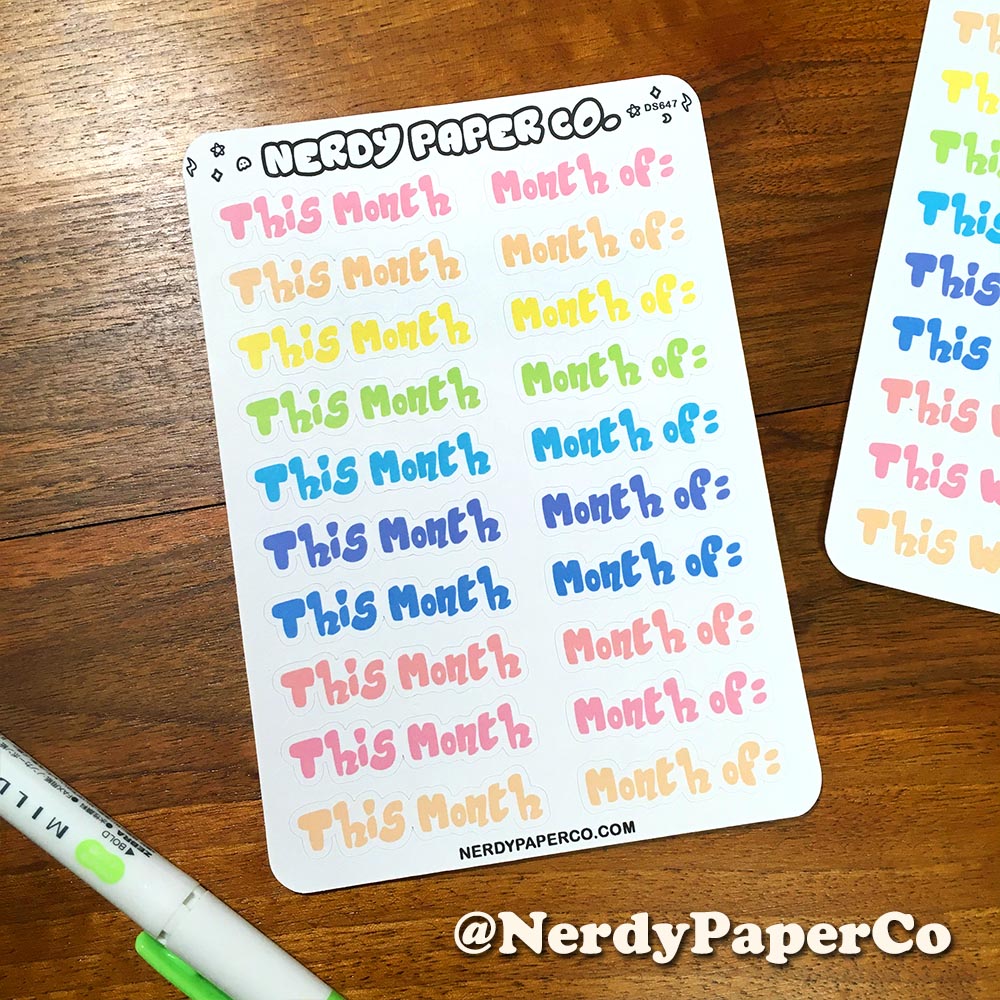 NERDY PAPER CO. DS647
This Month Month of:
This Month Month of:
This Month Month of:
This Month Month of:
This Month Month of:
This Month Month of:
This Month Month of:
This Month Month of:
This Month Month of:
This Month Month of:
NERDYPAPERCO.COM
This
This
This
This
This
This W
This W
This W
MILD
BOLD
ZEBRA
@NerdyPaperCo